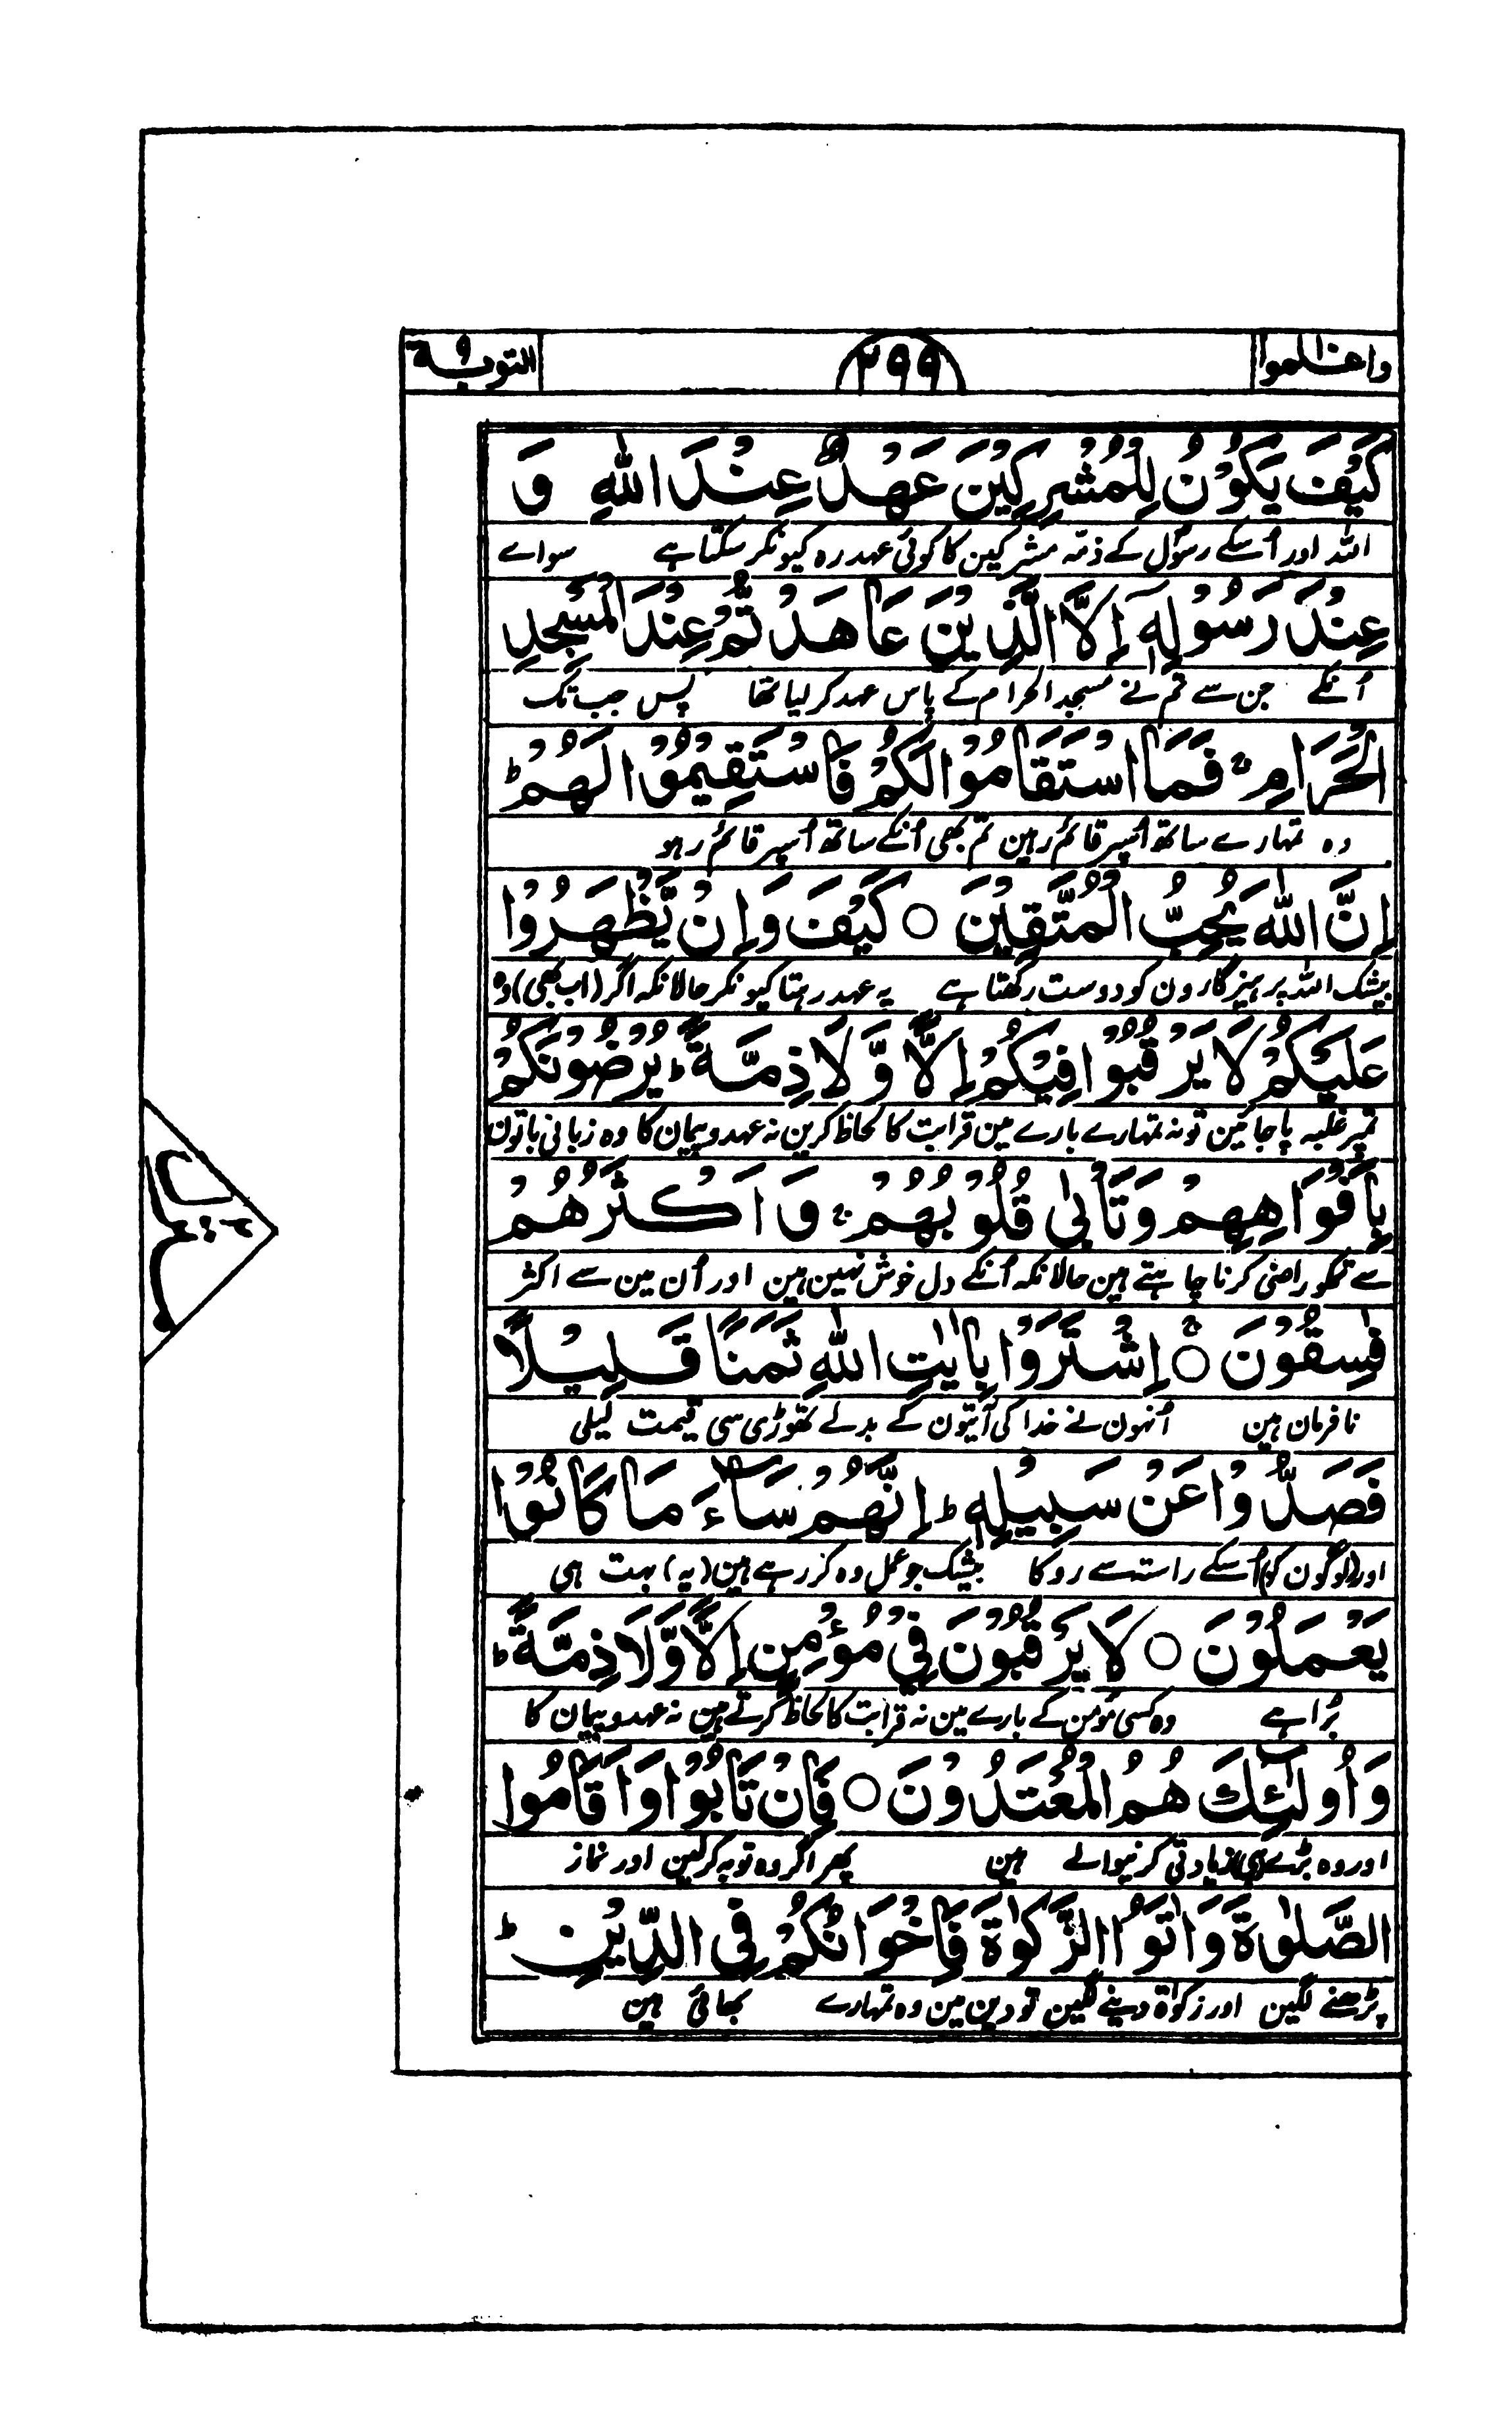 واعلموا ۱۰
۲۹۹
التوبة ۹
كَيْفَ يَكُوْنُ لِلْمُشْرِكِيْنَ عَهْدٌ عِنْدَ اللّٰهِ وَ
اللہ اور اُسکے رسول کے ذمہ مشرکین کا کوئی عہد رہ کیونکر سکتا ہے سواے
عِنْدَ رَسُوْلِهٖۤ اِلَّا الَّذِيْنَ عَاهَدْتُّمْ عِنْدَ الْمَسْجِدِ
اُنکے جن سے تم نے مسجد الحرام کے پاس عہد کر لیا تھا پس جب تک
الْحَرَامِ ۚ فَمَا اسْتَقَامُوْا لَكُمْ فَاسْتَقِيْمُوْا لَهُمْ ؕ
وہ تمہارے ساتھ اُسپر قائم رہین تم بھی اُنکے ساتھ اُسپر قائم رہو
اِنَّ اللّٰهَ يُحِبُّ الْمُتَّقِيْنَ ○ كَيْفَ وَاِنْ يَّظْهَرُوْا
بیشک اللہ پرہیزگارون کو دوست رکھتا ہے یہ عہد رہتا کیونکر حالانکہ اگر (اب بھی) وہ
عَلَيْكُمْ لَا يَرْقُبُوْا فِيْكُمْ اِلًّا وَّلَا ذِمَّةً ؕ يُرْضُوْنَكُمْ
تمپر غلبہ پا جائین تو نہ تمہارے بارے مین قرابت کا لحاظ کرین نہ عہد و پیمان کا وہ زبانی باتون
بِاَفْوَاهِهِمْ وَتَاْبٰى قُلُوْبُهُمْ ۚ وَاَكْثَرُهُمْ
سے تمکو راضی کرنا چاہتے ہین حالانکہ اُنکے دل خوش نہین ہین اور اُن مین سے اکثر
فٰسِقُوْنَ ۚ○ اِشْتَرَوْا بِاٰيٰتِ اللّٰهِ ثَمَنًا قَلِيْلًا
نافرمان ہین اُنہون نے خدا کی آیتون کے بدلے تھوڑی سی قیمت لیلی
فَصَدُّوْا عَنْ سَبِيْلِهٖ ؕ اِنَّهُمْ سَآءَ مَا كَانُوْا
اور (لوگون کو) اُسکے راستہ سے روکا بیشک جو عمل وہ کر رہے ہین (یہ) بہت ہی
يَعْمَلُوْنَ ○ لَا يَرْقُبُوْنَ فِيْ مُؤْمِنٍ اِلًّا وَّلَا ذِمَّةً ؕ
بُرا ہے وہ کسی مؤمن کے بارے مین نہ قرابت کا لحاظ کرتے ہین نہ عہد و پیمان کا
وَاُولٰٓئِكَ هُمُ الْمُعْتَدُوْنَ ○ فَاِنْ تَابُوْا وَاَقَامُوا
اور وہ بڑے (ہی) زیادتی کرنیوالے ہین پھر اگر وہ توبہ کرلین اور نماز
الصَّلٰوةَ وَاٰتَوُا الزَّكٰوةَ فَاِخْوَانُكُمْ فِى الدِّيْنِ ؕ
پڑھنے لگین اور زکوٰة دینے لگین تو دین مین وہ تمہارے بھائی ہین